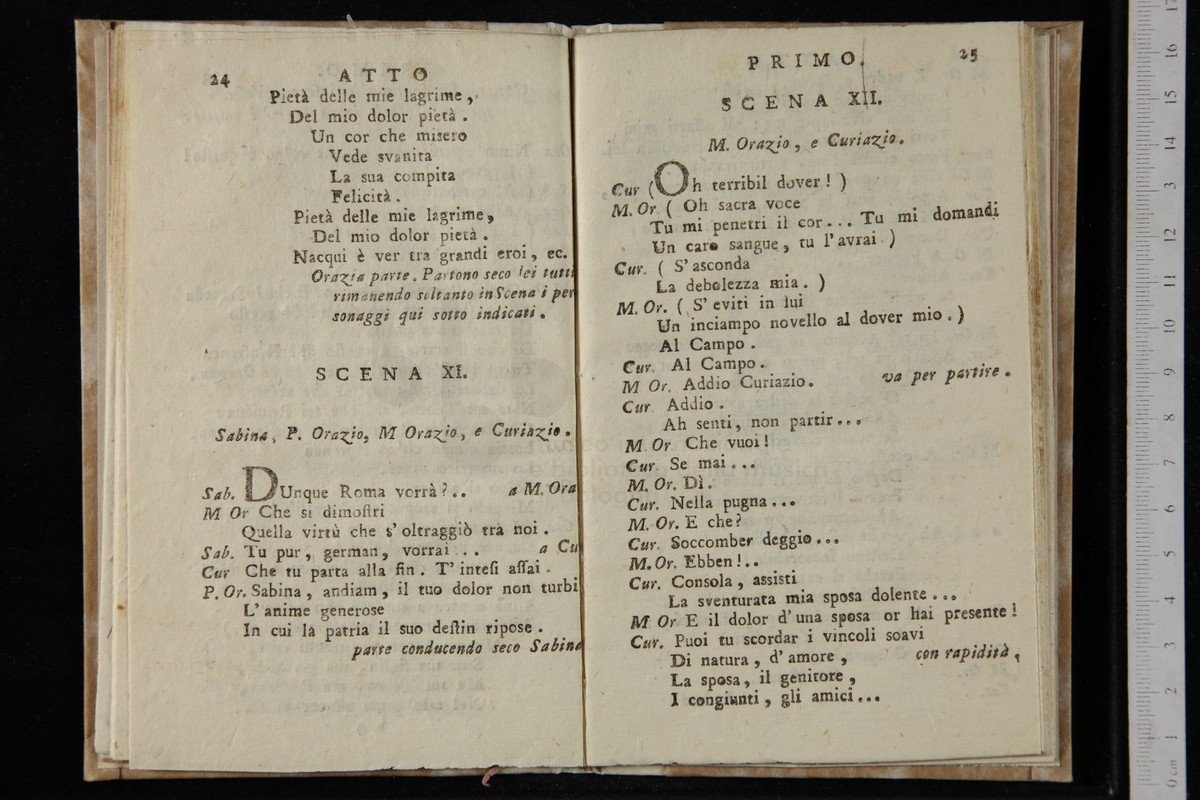 24 ATTO
Pietà delle mie lagrime,
Del mio dolor pietà.
Un cor che misero
Vede svanita
La sua compita
Felicità.
Pietà delle mie lagrime,
Del mio dolor pietà.
Nacqui è ver tra grandi eroi, ec.
Orazia parte. Partono seco lei tutti
rimanendo soltanto in Scena i per
sonaggi qui sotto indicati.
SCENA XI.
Sabina, P. Orazio, M Orazio, e Curiazio.
Sab. DUnque Roma vorrà?.. a M. Ora
M Or Che si dimoſtri
Quella virtù che s'oltraggiò tra noi.
Sab. Tu pur, german, vorrai ... a Cu
Cur Che tu parta alla fin. T'inteſi aſſai.
P. Or. Sabina, andiam, il tuo dolor non turbi
L'anime generose
In cui la patria il suo deſtin ripose.
parte conducendo seco Sabina
PRIMO. 25
SCENA XII.
M. Orazio, e Curiazio.
Cur (Oh terribil dover! )
M. Or ( Oh sacra voce
Tu mi penetri il cor... Tu mi domandi
Un caro sangue, tu l'avrai )
Cur. ( S'asconda
La debolezza mia. )
M. Or. ( S'eviti in lui
Un inciampo novello al dover mio. )
Al Campo.
Cur. Al Campo.
M Or. Addio Curiazio. va per partire.
Cur Addio.
Ah senti, non partir...
M. Or Che vuoi!
Cur. Se mai...
M. Or. Dì.
Cur. Nella pugna...
M. Or. E che?
Cur. Soccomber deggio...
M. Or. Ebben!..
Cur. Consola, assisti
La sventurata mia sposa dolente...
M Or E il dolor d'una sposa or hai presente!
Cur. Puoi tu scordar i vincoli soavi
Di natura, d'amore, con rapidità,
La sposa, il genitore,
I congiunti, gli amici...